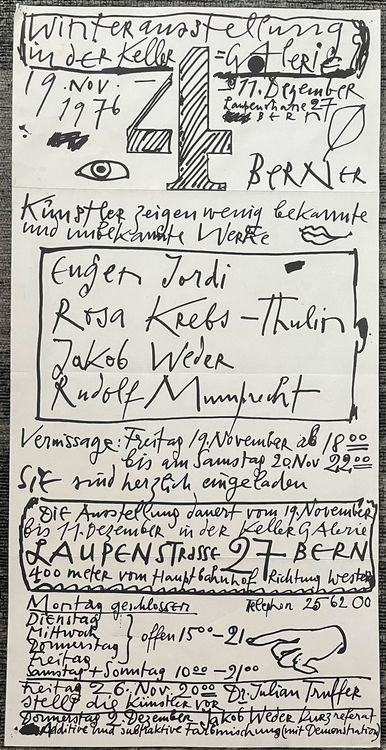 Winterausstellung
in der Keller=GAlerie
19. Nov. – 11. Dezember
1976
Laupenstrasse 27
BERN
4
BERNER
Künstler zeigen wenig bekannte
und unbekannte Werke
Eugen Jordi
Rosa Krebs-Thulin
Jakob Weder
Rudolf Mumprecht
Vernissage: Freitag 19. November ab 18 00
bis am Samstag 20. Nov 22 00
SIE sind herzlich eingeladen
DIE Ausstellung dauert vom 19. November
bis 11. Dezember in der KellerGAlerie
LAUPENSTRASSE 27 BERN
400 meter vom Hauptbahnhof Richtung Westen
Montag geschlossen
Telephon 25 62 00
Dienstag
Mittwoch
Donnerstag
Freitag
offen 15 00 – 21
Samstag + Sonntag 10 00 – 21 00
Freitag 26. Nov. 20 00 Dr. Julian Truffer
stellt die Künstler vor
Donnerstag 2. Dezember Jakob Weder Kurzreferat
Additive und subtraktive Farbmischung (mit Demonstration)